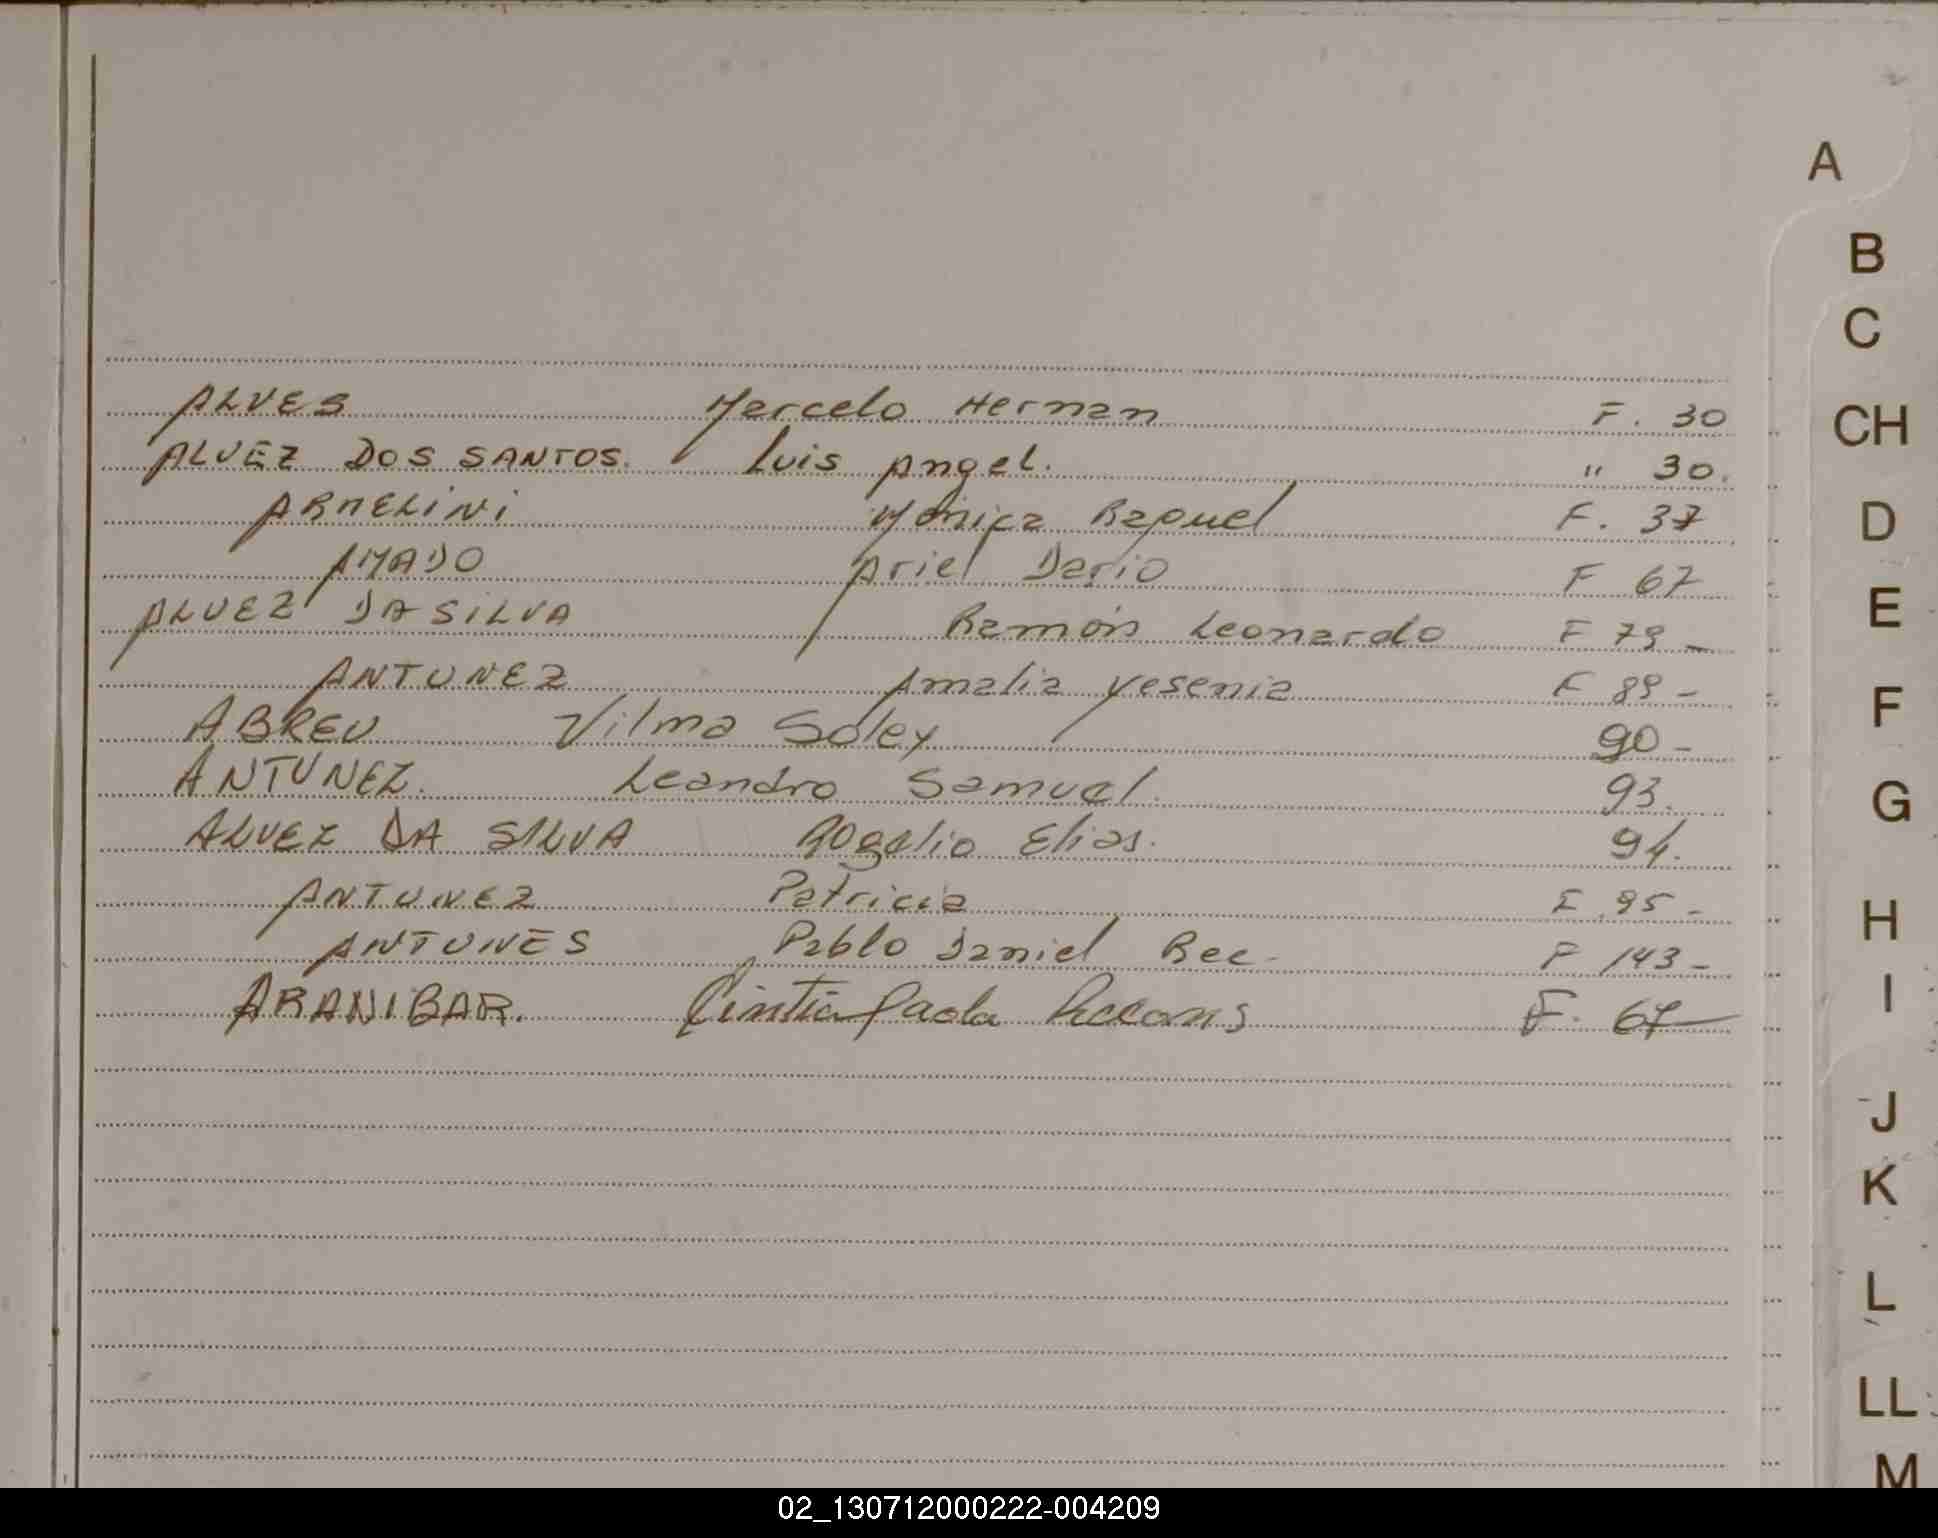 A
B
C
CH
D
E
F
G
H
I
J
K
L
LL
M
ALVES Marcelo Hernan F. 30
ALVEZ DOS SANTOS. Luis Angel. " 30.
ARMELINI Mónica Raquel F. 37
AMADO Ariel Dario F 67
ALVEZ DA SILVA Ramón Leonardo F 79 -
ANTUNEZ Amalia Yesenia F 89 -
ABREU Vilma Soley 90 -
ANTUNEZ. Leandro Samuel. 93.
ALVEZ DA SILVA Rogelio Elias. 94.
ANTUNEZ Patricia F 95 -
ANTUNES Pablo Daniel Rec. F 143 -
ARANIBAR. Cintia Paola F. 67
02_130712000222-004209